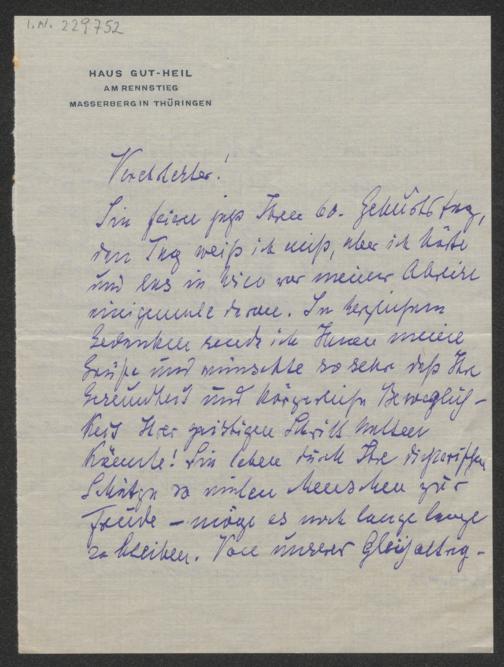 I.N. 229752
HAUS GUT-HEIL
AM RENNSTIEG
MASSERBERG IN THÜRINGEN
Verehrtester!
Sie feiern jetzt Ihren 60. Geburtstag,
den Tag weiß ich nicht, aber ich hörte
und las in Wien vor meiner Abreise
einigemale davon. In herzlichem
Gedenken sende ich Ihnen meine
Grüße und wünschte so sehr daß Ihre
Gesundheit und körperliche Beweglich-
keit Ihrer geistigen Schritt halten
könnte! Sie leben durch Ihre dichterischen
Schätze so vielen Menschen zur
Freude – möge es noch lange lange
so bleiben. Von unserer Gleichaltrig-